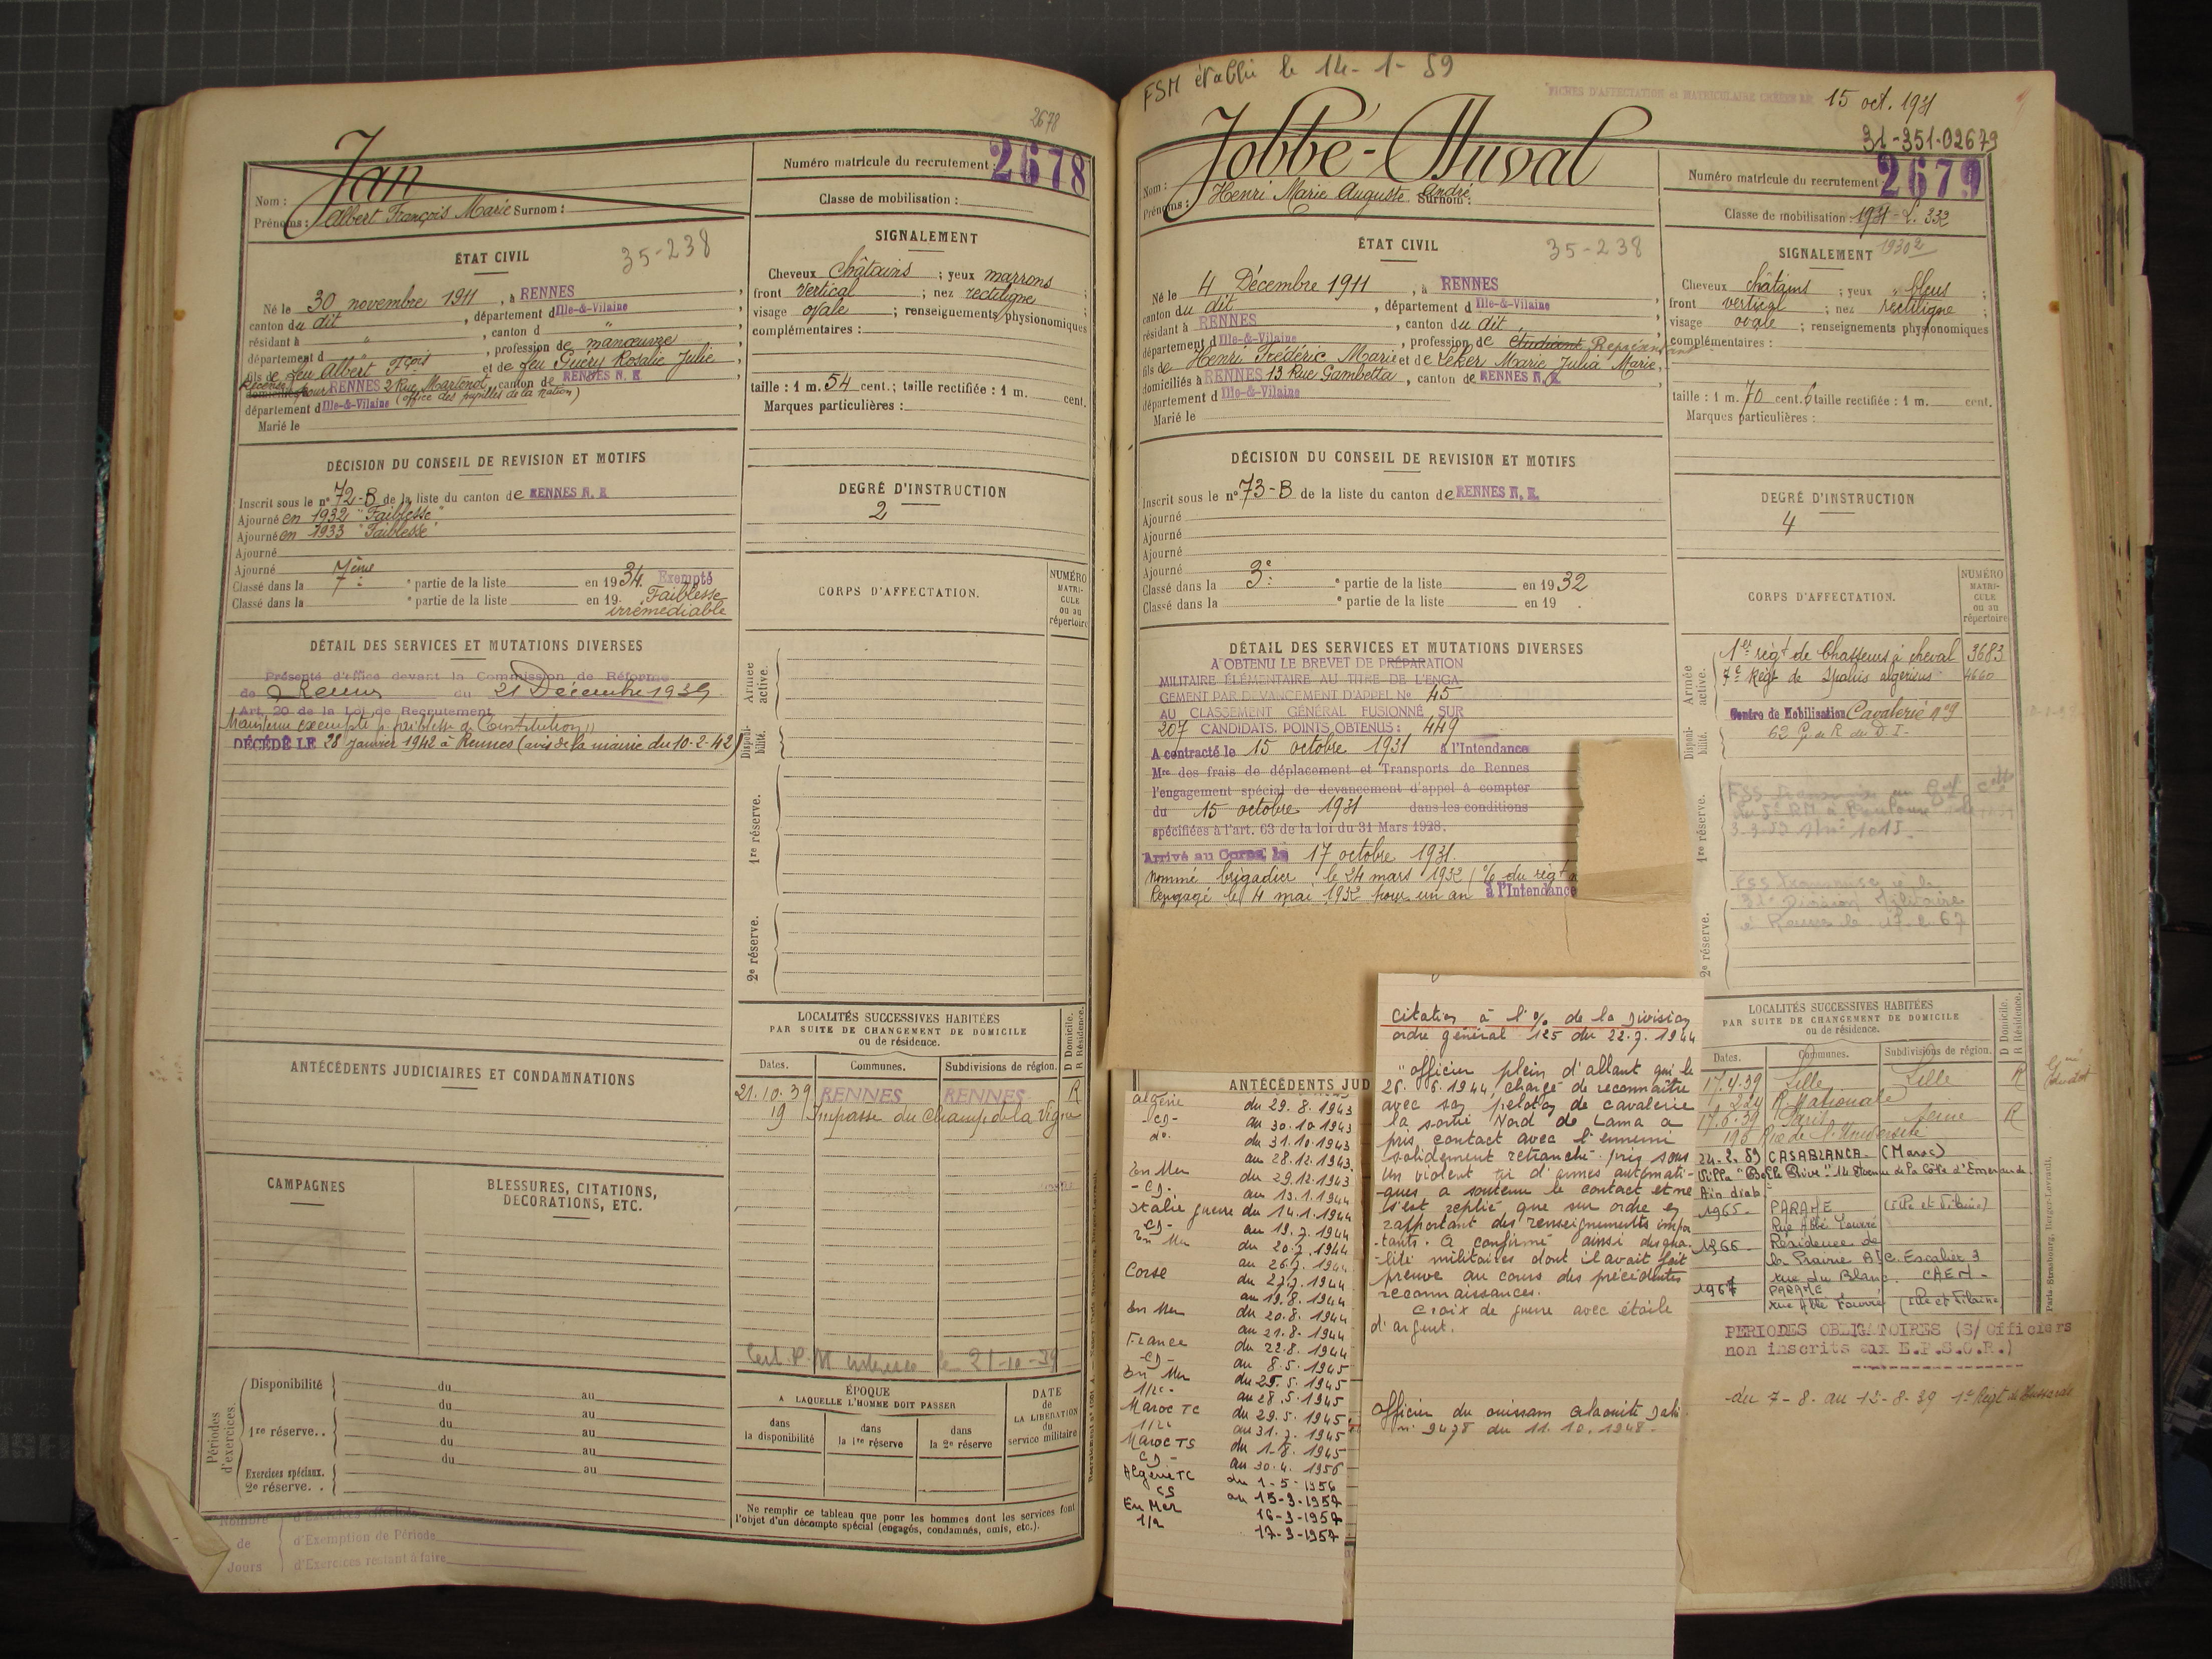 2678
Jan
Nom :
Prénoms : Albert François Marie Surnom :
Numéro matricule du recrutement : 2678
Classe de mobilisation :
ÉTAT CIVIL
35-238
Né le 30 novembre 1911, à RENNES,
canton du dit, département d Ille-&-Vilaine
résidant à " , canton d "
département d " , profession de manœuvre
fils de feu Albert Fçois et de feu Guéry Rosalie Julie,
domiciliés pour RENNES 2 Rue Martenot, canton de RENNES N. E
(office des pupilles de la nation)
département d Ille-&-Vilaine
Marié le
SIGNALEMENT
Cheveux châtains ; yeux marrons ;
front vertical ; nez rectiligne ;
visage ovale ; renseignements physionomiques
complémentaires :
taille : 1 m. 54 cent. ; taille rectifiée : 1 m. cent.
Marques particulières :
DÉCISION DU CONSEIL DE REVISION ET MOTIFS
Inscrit sous le n° 72-B de la liste du canton de RENNES N. E
Ajourné en 1932 "Faiblesse"
Ajourné en 1933 "Faiblesse"
Ajourné
Ajourné
Classé dans la 7ème partie de la liste en 1934. Exempté
Classé dans la e partie de la liste en 19 . Faiblesse
irrémédiable
DEGRÉ D'INSTRUCTION
2
CORPS D'AFFECTATION.
NUMÉRO
MATRI-
CULE
ou au
répertoire
DÉTAIL DES SERVICES ET MUTATIONS DIVERSES
Présenté d'office devant la Commission de Réforme
de Rennes du 21 Décembre 1939
Art. 20 de la Loi de Recrutement
Maintenu exempté p. faiblesse de Constitution"
DÉCÉDÉ LE 28 janvier 1942 à Rennes (avis de la mairie du 10-2-42)
Armée active.
Disponibilité.
1re réserve.
2e réserve.
ANTÉCÉDENTS JUDICIAIRES ET CONDAMNATIONS
LOCALITÉS SUCCESSIVES HABITÉES
PAR SUITE DE CHANGEMENT DE DOMICILE
ou de résidence.
D Domicile.
R Résidence.
Dates. Communes. Subdivisions de région.
21.10.39 RENNES RENNES R
19 Impasse du Champ de la Vigne
CAMPAGNES
BLESSURES, CITATIONS,
DÉCORATIONS, ETC.
le 21-10-39
Périodes d'exercices.
Disponibilité du au
du au
1re réserve.. du au
du au
Exercices spéciaux.
2e réserve. . du au
ÉPOQUE
A LAQUELLE L'HOMME DOIT PASSER
dans la disponibilité
dans la 1re réserve
dans la 2e réserve
DATE
de
LA LIBÉRATION
du
service militaire
Ne remplir ce tableau que pour les hommes dont les services font
l'objet d'un décompte spécial (engagés, condamnés, omis, etc.).
Nombre
de
Jours
d'Exemption de Période
d'Exercices restant à faire
FSM établie le 14-1-59
FICHES D'AFFECTATION et MATRICULAIRE CRÉÉES LE 15 oct. 1931
31-351-02679
Jobbé-Duval
Nom :
Prénoms : Henri Marie Auguste André
Surnom :
Numéro matricule du recrutement 2679
Classe de mobilisation : 1931
ÉTAT CIVIL
35-238
Né le 4 Décembre 1911, à RENNES
canton du dit, département d Ille-&-Vilaine
résidant à RENNES, canton du dit,
département d Ille-&-Vilaine, profession de étudiant Représentant
fils de Henri Frédéric Marie et de Léker Marie Julia Marie,
domiciliés à RENNES 13 Rue Gambetta, canton de RENNES N. E.
département d Ille-&-Vilaine
Marié le
SIGNALEMENT
Cheveux châtains ; yeux bleus ;
front vertical ; nez rectiligne ;
visage ovale ; renseignements physionomiques
complémentaires :
taille : 1 m. 70 cent. 6 taille rectifiée : 1 m. cent.
Marques particulières :
DÉCISION DU CONSEIL DE REVISION ET MOTIFS
Inscrit sous le n° 73-B de la liste du canton de RENNES N. E.
Ajourné
Ajourné
Ajourné
Ajourné
Classé dans la 3e partie de la liste en 1932
Classé dans la e partie de la liste en 19 .
DEGRÉ D'INSTRUCTION
4
CORPS D'AFFECTATION.
NUMÉRO
MATRI-
CULE
ou au
répertoire
DÉTAIL DES SERVICES ET MUTATIONS DIVERSES
A OBTENU LE BREVET DE PRÉPARATION
MILITAIRE ÉLÉMENTAIRE AU TITRE DE L'ENGA-
GEMENT PAR DEVANCEMENT D'APPEL N° 45
AU CLASSEMENT GÉNÉRAL FUSIONNÉ SUR
207 CANDIDATS. POINTS OBTENUS : 449
A contracté le 15 octobre 1931 à l'Intendance
Mre des frais de déplacement et Transports de Rennes
l'engagement spécial de devancement d'appel à compter
du 15 octobre 1931 dans les conditions
spécifiées à l'art. 63 de la loi du 31 Mars 1928.
Arrivé au Corps le 17 octobre 1931.
Nommé brigadier le 24 mars 1932
Rengagé le 4 mai 1932 pour un an à l'Intendance
Armée active.
1er régt de Chasseurs à cheval 3683
7e Régt de Spahis algériens 4660
Disponibilité.
Centre de Mobilisation Cavalerie n°9
1re réserve.
2e réserve.
ANTÉCÉDENTS JUD
Algérie du 29.8.1943
-CD- au 30.10.1943
do du 31.10.1943
au 28.12.1943
En Mer du 29.12.1943
-CD- au 13.1.1944
Italie guerre du 14.1.1944
-CD- au 19.7.1944
En Mer du 20.7.1944
au 26.7.1944
Corse du 27.7.1944
au 19.8.1944
En Mer du 20.8.1944
au 21.8.1944
France du 22.8.1944
-CD- au 8.5.1945
En Mer du 25.5.1945
1/2c- au 28.5.1945
Maroc TC du 29.5.1945
1/2c au 31.7.1945
Maroc TS du 1.8.1945
CD- au 30.4.1956
Algérie TC du 1-5-1956
CS au 15-3-1957
En Mer 16-3-1957
1/2 17-3-1957
Citation à l'o/ de la Division
ordre général 125 du 22.7.1944
"Officier plein d'allant qui le
26.6.1944, chargé de reconnaître
avec son peloton de cavalerie
la sortie Nord de Lama a
pris contact avec l'ennemi
solidement retranché. pris sous
un violent tir d'armes automati-
-ques a soutenu le contact et ne
s'est replié que sur ordre en
rapportant des renseignements impor
-tants. A confirmé ainsi des qua-
-lités militaires dont il avait fait
preuve au cours des précédentes
reconnaissances.
Croix de guerre avec étoile
d'argent.
Officier du ouissam alaouite
n° 9478 du 11.10.1948-
LOCALITÉS SUCCESSIVES HABITÉES
PAR SUITE DE CHANGEMENT DE DOMICILE
ou de résidence.
D Domicile.
R Résidence.
Dates. Communes. Subdivisions de région.
17.4.39 Lille Lille R
224 R. Nationale
17.6.39 Paris Seine R
196 Rue de l'Université
24.2.59 CASABLANCA. (Maroc)
Villa "Belle Rive" 14 Avenue de la Côte d'Emeraude
Ain diab.
1965- PARAMÉ (Ille et Vilaine)
Rue Abbé
1966- Résidence de
la Prairie Bt C. Escalier 3
rue du Blanc. CAEN-
1967 PARAMÉ
rue Abbé (Ille et Vilaine)
PERIODES OBLIGATOIRES (S/Officiers
non inscrits aux E.P.S.O.R.)
-du 7-8- au 12-8-39 1er Régt de Hussards